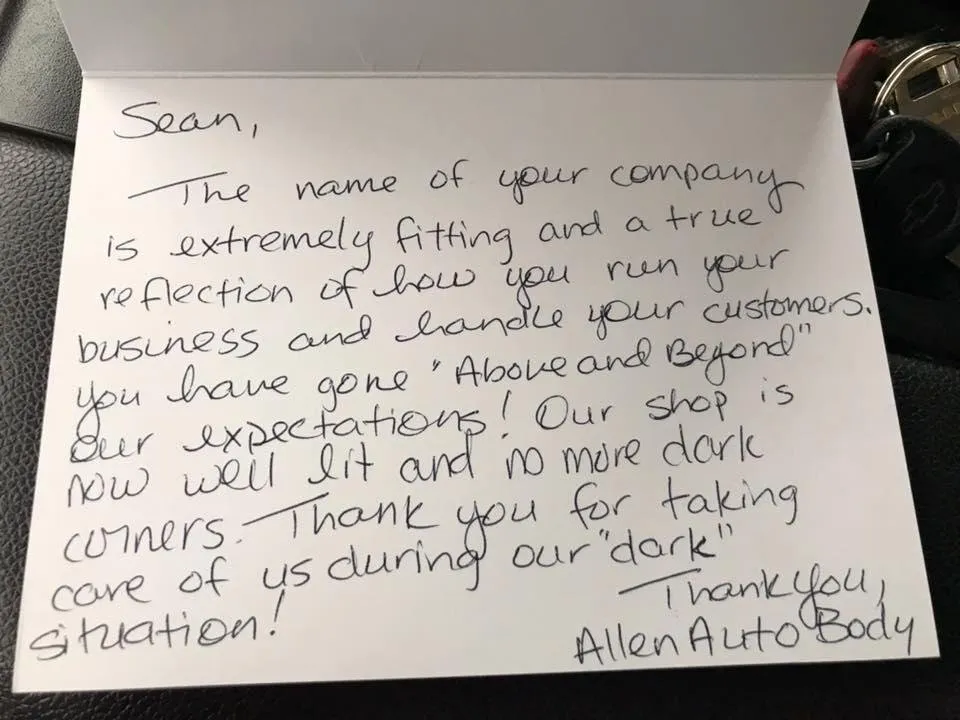 Sean,
The name of your company
is extremely fitting and a true
reflection of how you run your
business and handle your customers.
you have gone "Above and Beyond"
our expectations! Our shop is
now well lit and no more dark
corners. Thank you for taking
care of us during our "dark"
situation!
Thank you,
Allen Auto Body